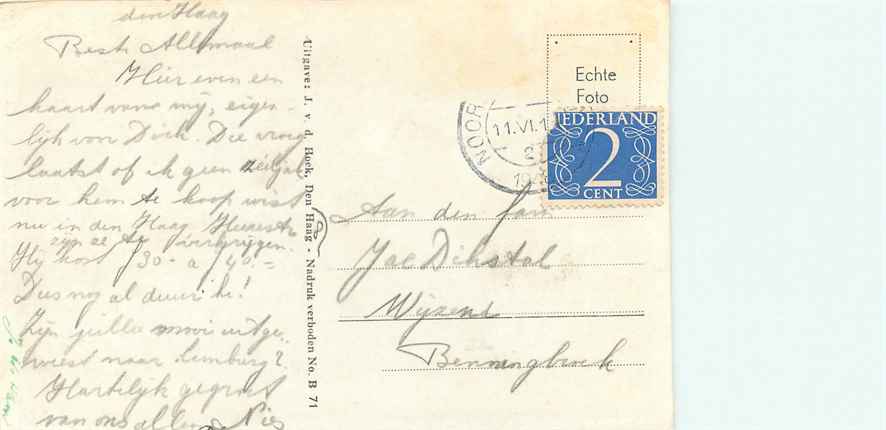 den Haag
Beste Allemaal
Hier even een
kaart van mij, eigen-
lijk voor Dirk. Die vroeg
laatst of ik geen
voor hem te koop wist
nu in den Haag
zijn ze te verkrijgen.
Hij kost f 30.- a f 40.-
Dus nog al duur hè!
Zijn jullie mooi uitge-
weest naar Limburg?
Hartelijk gegroet
van ons allen
Uitgave: J. v. d. Hoek, Den Haag - Nadruk verboden No. B 71
Echte
Foto
NOOR
11.VI.1
NEDERLAND
2
CENT
Aan den fam
Jac
Wijzend
Benningbroek